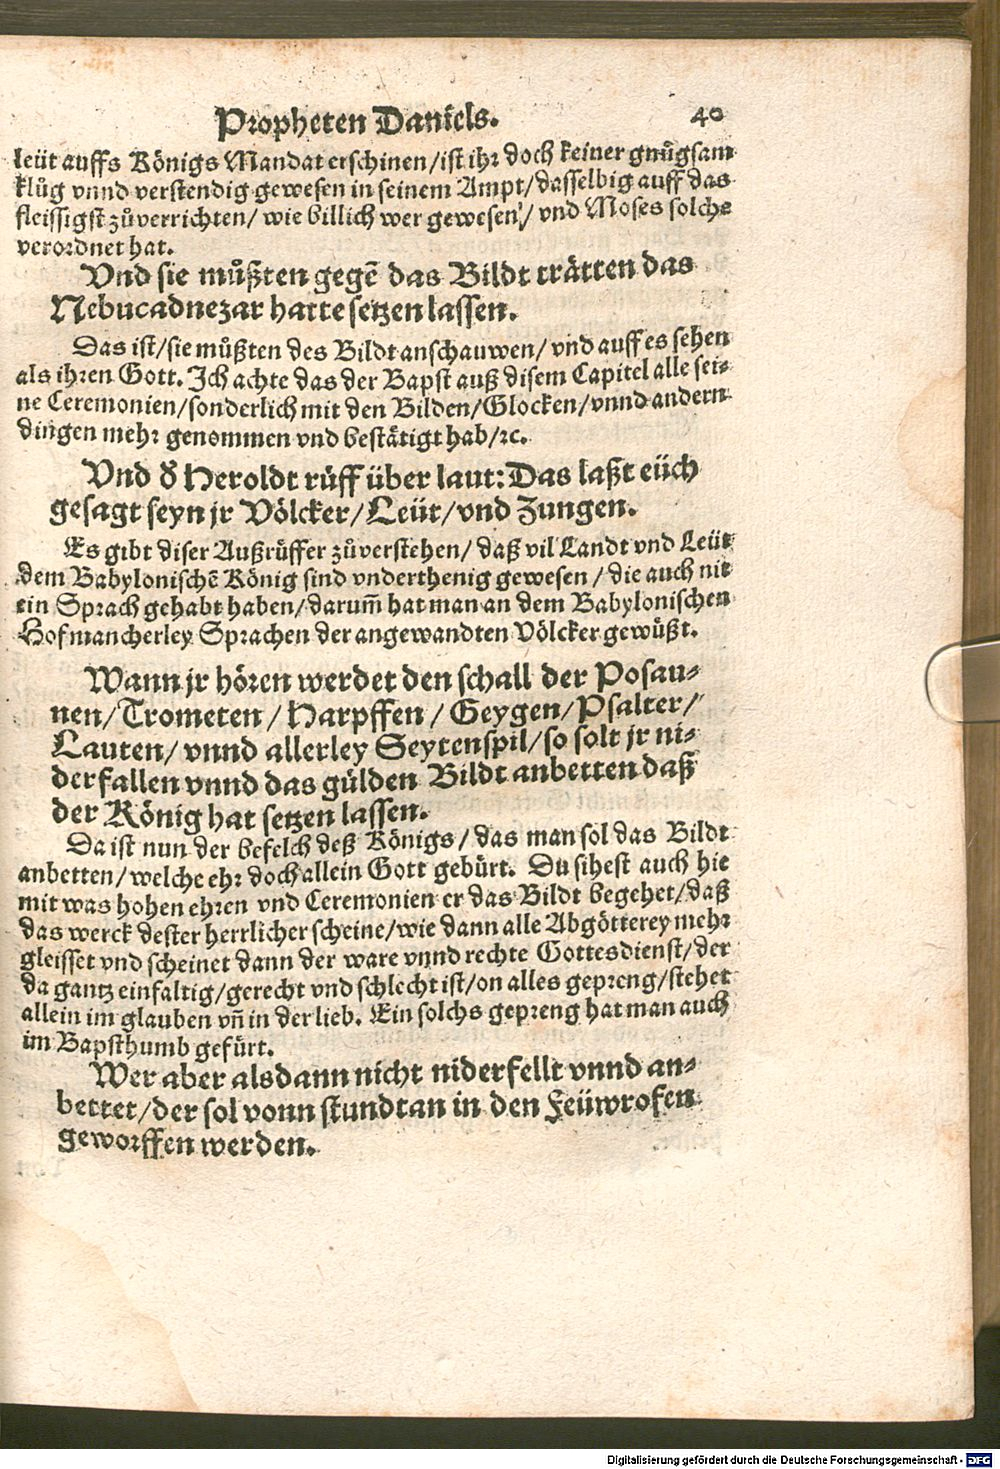 Propheten Daniels. 40
leüt auffs Königs Mandat erschinen/ist ihr doch keiner gnůgsam
klůg vnnd verstendig gewesen in seinem Ampt/dasselbig auff das
fleissigst zůverrichten/ wie billich wer gewesen/ vnd Moses solchs
verordnet hat.
Vnd sie můßten gegẽ das Bildt trätten das
Nebucadnezar hatte setzen lassen.
Das ist/sie můßten des Bildt anschauwen/ vnd auff es sehen
als ihren Gott. Ich achte das der Bapst auß disem Capitel alle sei-
ne Ceremonien/sonderlich mit den Bilden/Glocken/vnnd andern
dingen mehr genommen vnd bestätigt hab/ꝛc.
Vnd d̕ Heroldt růff über laut: Das laßt eüch
gesagt seyn jr Völcker/Leüt/vnd Zungen.
Es gibt diser Außrůffer zůverstehen/ daß vil Landt vnd Leüt
dem Babylonischẽ König sind vnderthenig gewesen / die auch nit
ein Sprach gehabt haben/darum̃ hat man an dem Babylonischen
Hof mancherley Sprachen der angewandten Völcker gewüßt.
Wann jr hören werdet den schall der Posau-
nen/Trometen / Harpffen / Geygen/Psalter/
Lauten/ vnnd allerley Seytenspil/so solt jr ni-
derfallen vnnd das gülden Bildt anbetten daß
der König hat setzen lassen.
Da ist nun der befelch deß Königs/ das man sol das Bildt
anbetten/welche ehr doch allein Gott gebürt. Du sihest auch hie
mit was hohen ehren vnd Ceremonien er das Bildt begehet/daß
das werck dester herrlicher scheine/wie dann alle Abgötterey mehr
gleisset vnd scheinet dann der ware vnnd rechte Gottesdienst/der
da gantz einfaltig/gerecht vnd schlecht ist/on alles gepreng/stehet
allein im glauben vñ in der lieb. Ein solchs gepreng hat man auch
im Bapsthumb gefürt.
Wer aber alsdann nicht niderfellt vnnd an-
bettet/der sol vonn stundtan in den Feüwrofen
geworffen werden.
Digitalisierung gefördert durch die Deutsche Forschungsgemeinschaft - DFG